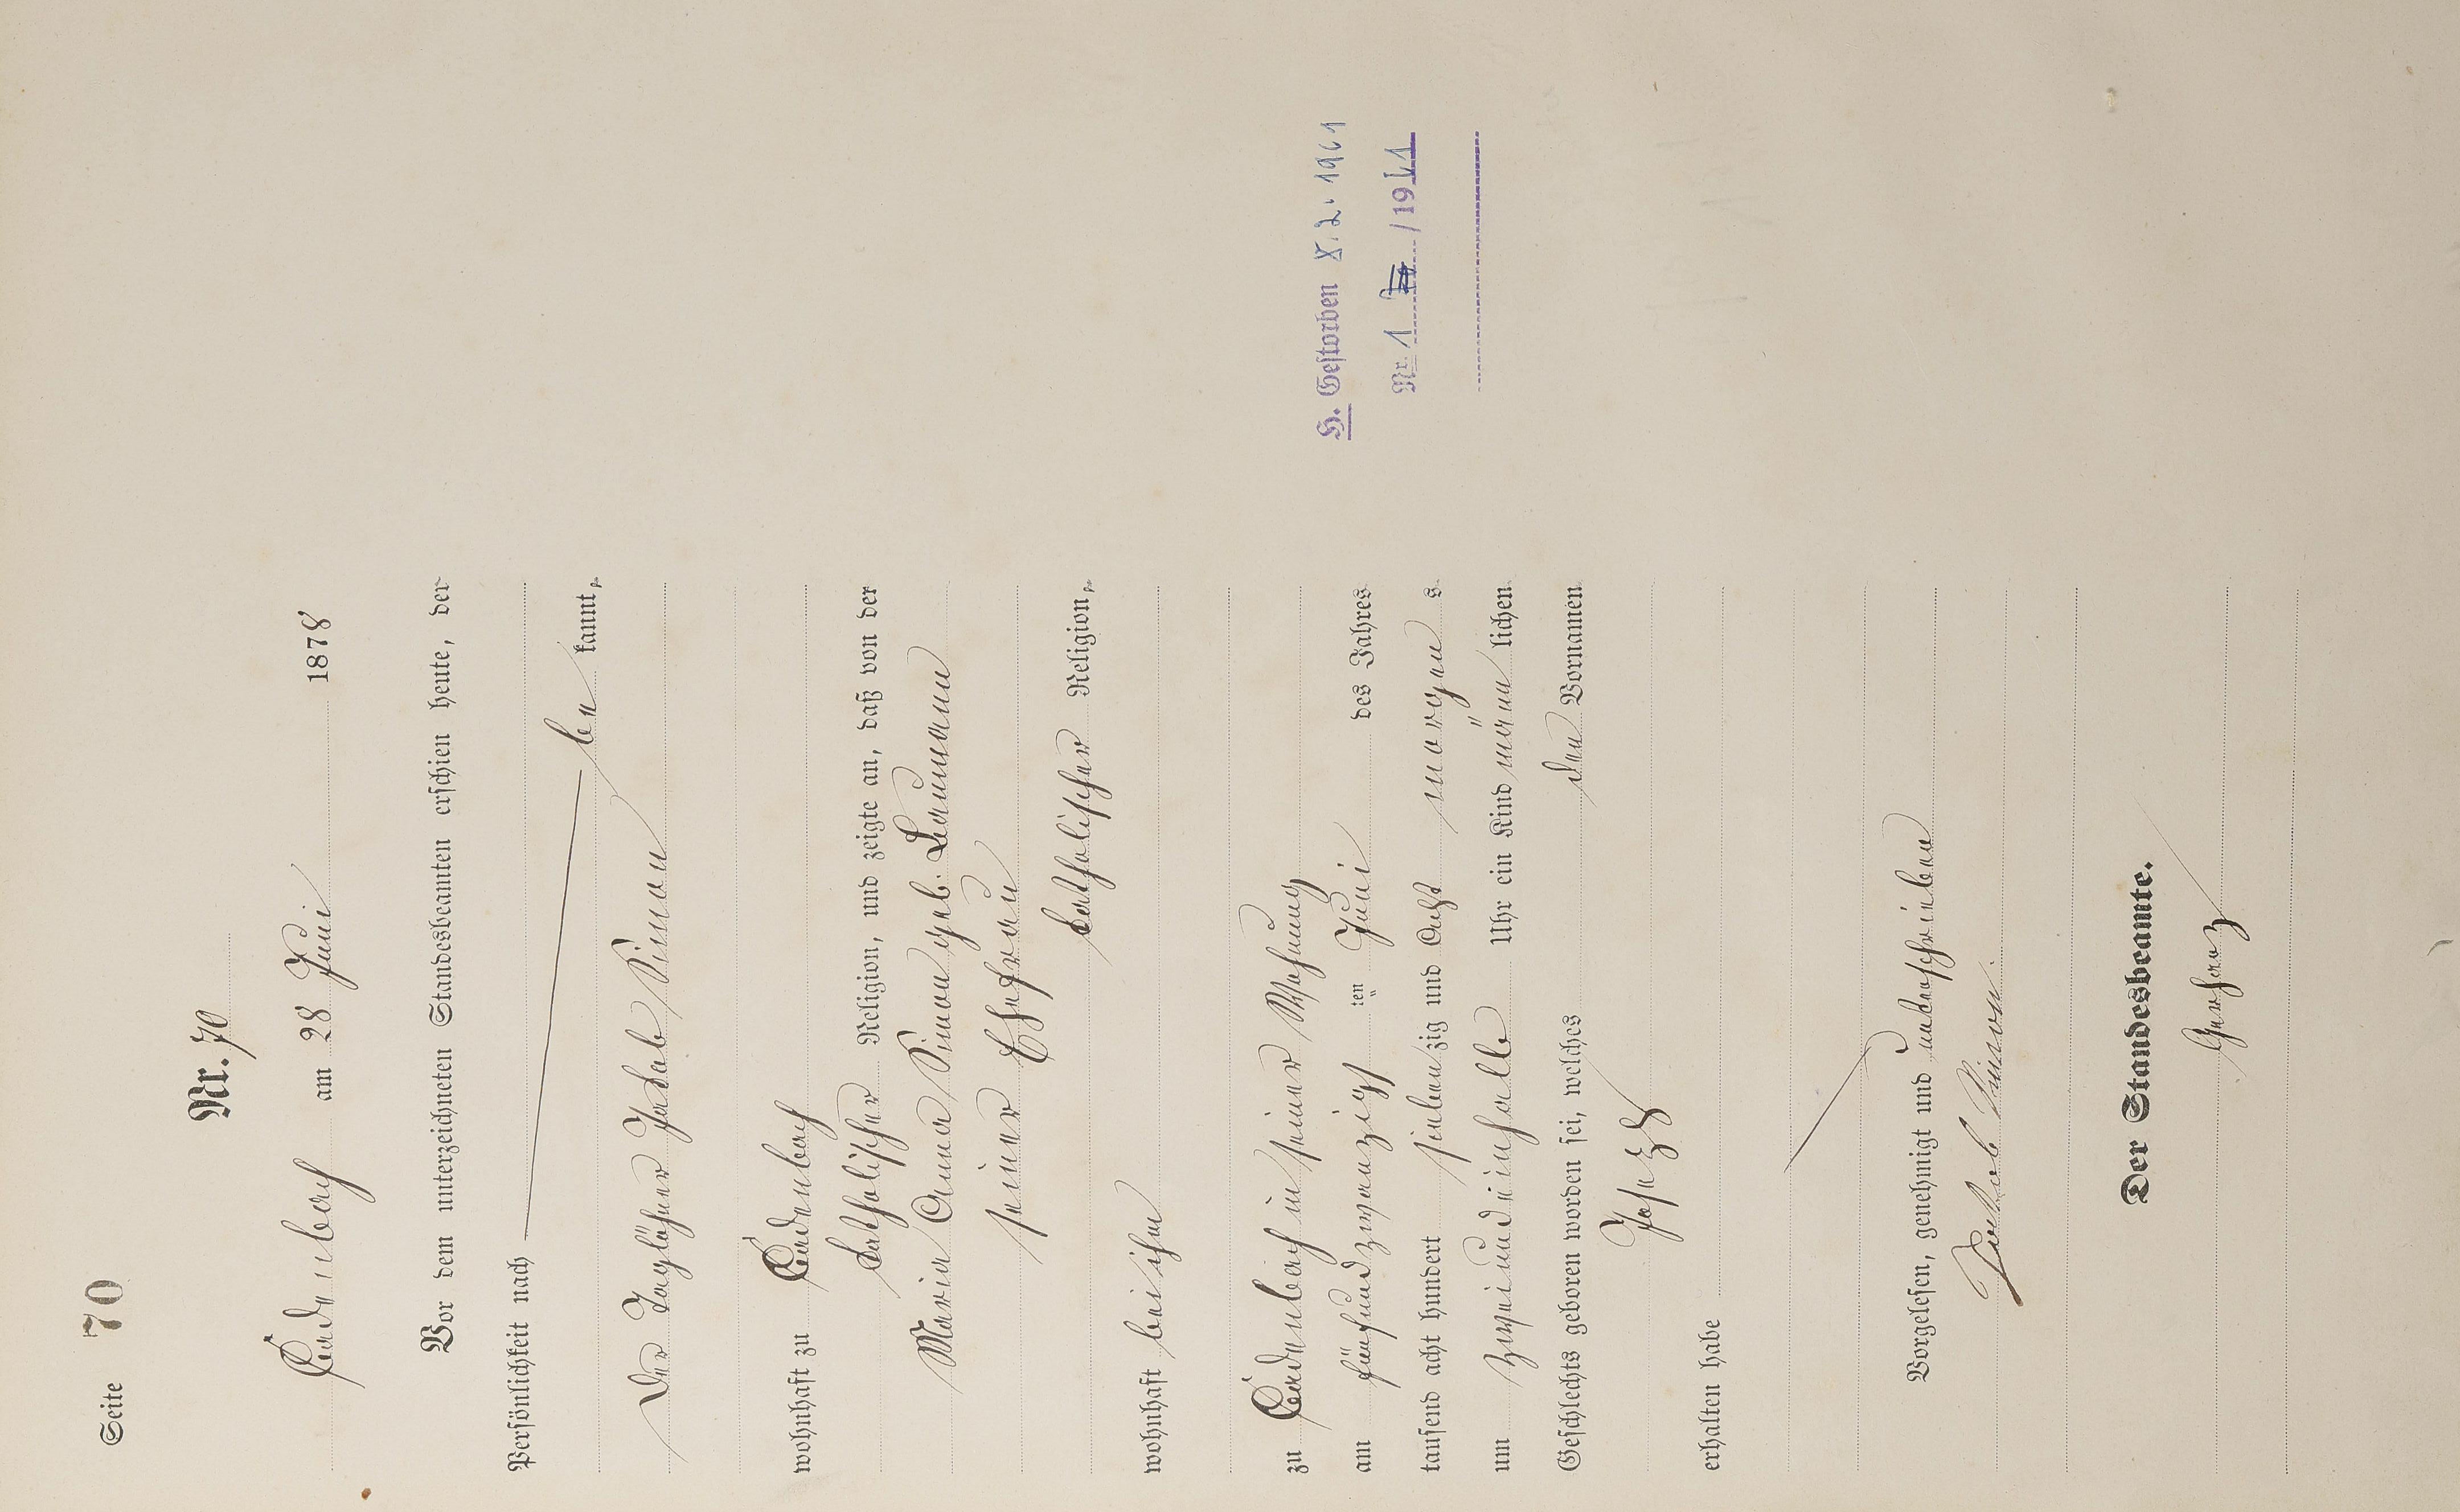 Seite 70
Nr. 70
Cadenbach am 28 Juni 1878
Vor dem unterzeichneten Standesbeamten erschien heute, der
Persönlichkeit nach
be kannt,
Der Taglöhner Jakob Simon
wohnhaft zu Cadenbach
katholischer Religion, und zeigte an, daß von der
Maria Anna Simon geb. Baumann
seiner Ehefrau
katholischer Religion,
wohnhaft bei ihm
zu Cadenbach in seiner Wohnung
am fünfundzwanzigs ten Juni des Jahres
tausend acht hundert siebenzig und Acht morgen s
um zweiundeinhalb Uhr ein Kind männ lichen
Geschlechts geboren worden sei, welches den Vornamen
Josef
erhalten habe
Vorgelesen, genehmigt und unterschrieben
Jakob Simon.
Der Standesbeamte.
Gerharz
H. Gestorben 8.2.1961
Nr. 1 /1961